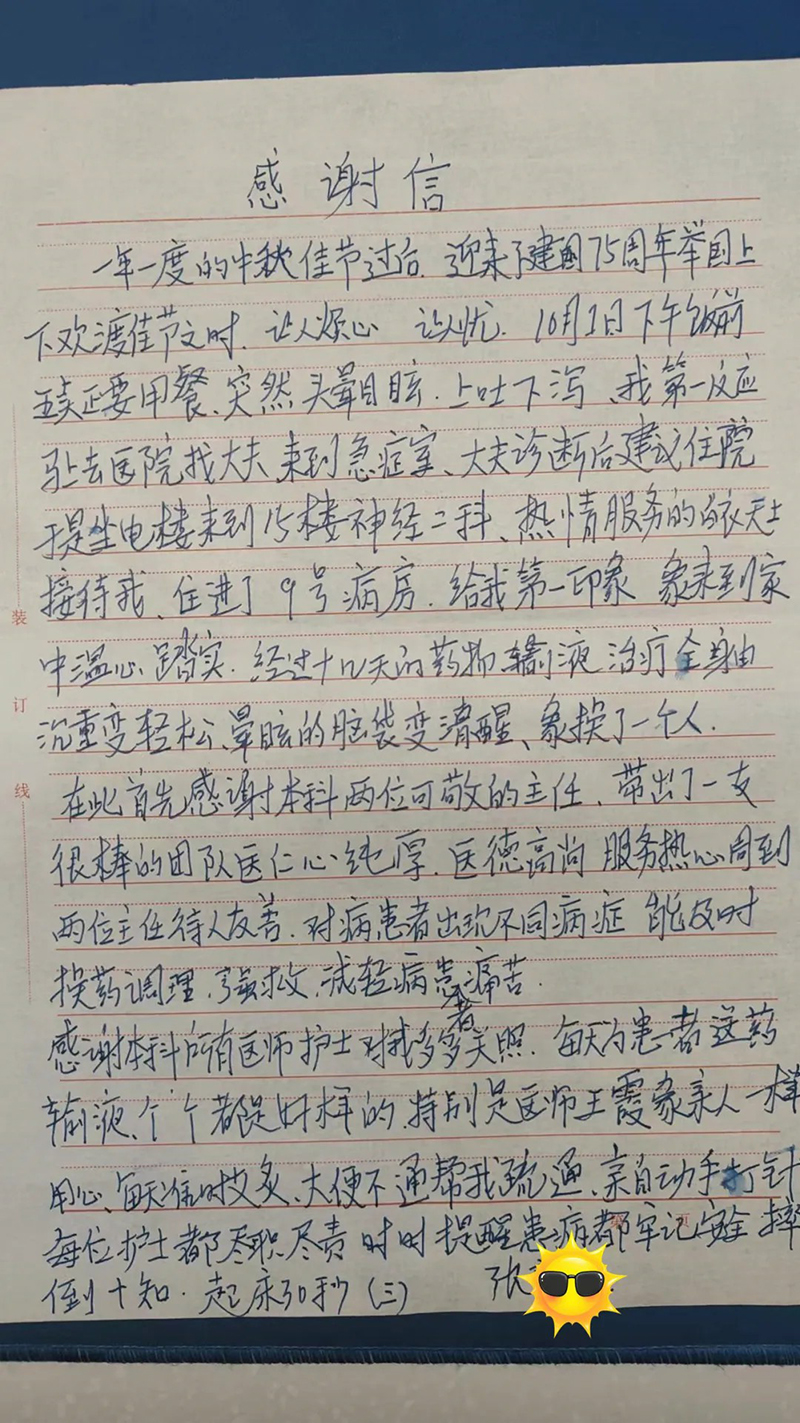 感谢信
一年一度的中秋佳节过后.迎来了建国75周年举国上
下欢渡佳节之时.让人烦心 让人忧.10月1日下午饭前
正要用餐、突然头晕目眩.上吐下泻、我第一反应
去医院找大夫、来到急症室、大夫诊断后建议住院
于是坐电楼来到15楼神经二科、热情服务的白衣天士
接待我、住进了9号病房.给我第一印象 象来到家
中温心踏实.经过十几天的药物输液治疗全身由
沉重变轻松、晕眩的脑袋变清醒、象换了一个人.
在此首先感谢本科两位可敬的主任、带出了一支
很棒的团队医仁心纯厚.医德高尚 服务热心周到
两位主任待人友善.对病患者出现不同病症 能及时
换药调理、强救、减轻病患者痛苦.
感谢本科所有医师护士对我多多关照.每天为患者送药
输液、个个都是好样的、特别是医师王霞象亲人一样
用心、每天准时艾灸、大便不通帮我疏通、亲自动手打针
每位护士都尽职尽责 时时提醒患病都牢记安全 摔
倒十知.起床30秒(三) 张
装
订
线